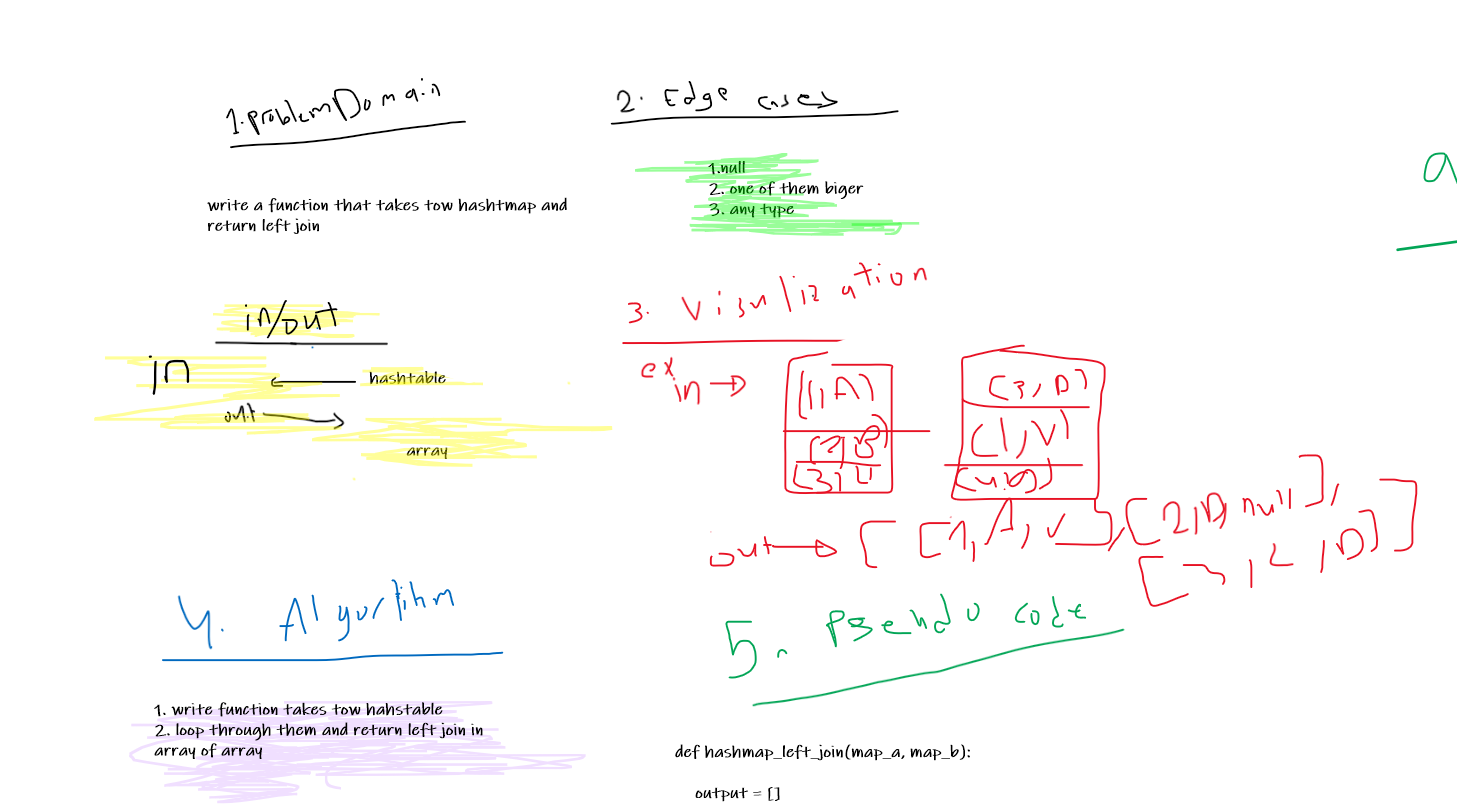 1.problemDomain
write a function that takes tow hashtmap and
return left join
in/out
in
hashtable
out
array
2. Edge cases
1.null
2. one of them biger
3. any type
3. Visulization
ex
in
(1,A)
(3,D)
(1,V)
out [ [1, A, V],[2,B, null],
[3, C, D]]
4. Algortihm
1. write function takes tow hahstable
2. loop through them and return left join in
array of array
5. Psehdo code
def hashmap_left_join(map_a, map_b):
output = []
a